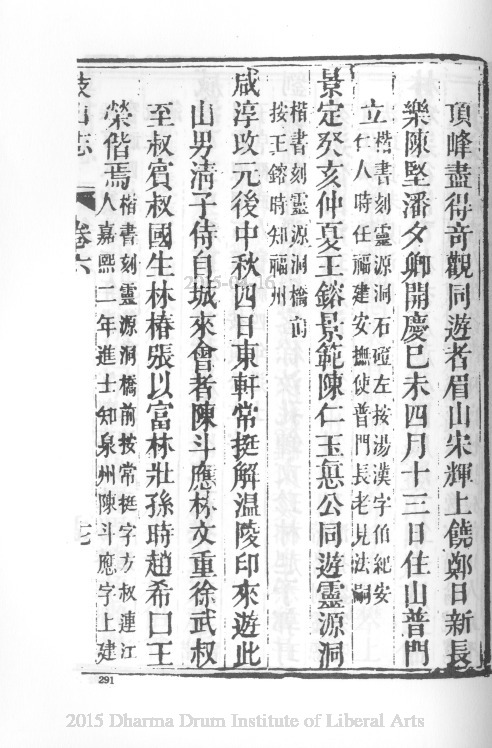 頂峰盡得奇觀同遊者眉山宋輝上饒鄭日新長
樂陳堅潘夕卿開慶巳未四月十三日住山普門
立
楷書刻靈源洞石磴左按湯漢字伯紀安
仁人時任福建安撫使普門長老見法嗣
景定癸亥仲夏王鎔景範陳仁玉㤙公同遊靈源洞
楷書刻靈源洞橋前
按王鎔時知福州
咸淳改元後中秋四日東軒常挺解温陵印來遊此
山男淸子侍自城來會者陳斗應林文重徐武叔
至叔賓叔國生林椿張以富林壯孫時趙希囗王
榮偕焉
楷書刻靈源洞橋前按常挺字方叔連江
人嘉熙二年進士知泉州陳斗應字上建
鼓山志
卷六
291
2015-04-16
2015 Dharma Drum Institute of Liberal Arts